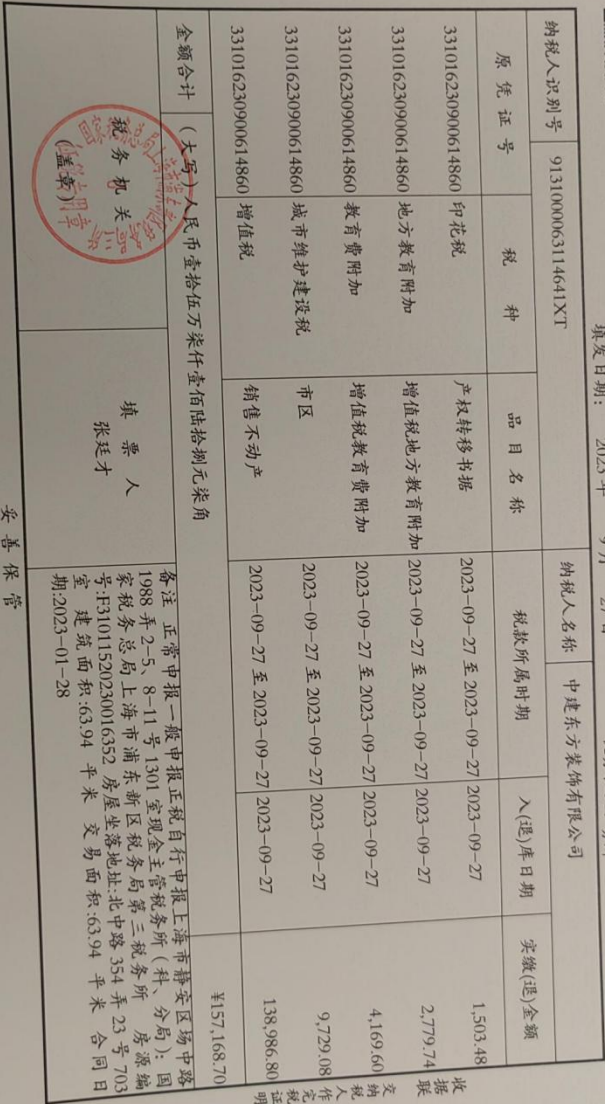 填发日期： 2023 年 9 月 27 日
纳税人识别号 91310000631146411XT 纳税人名称 中建东方装饰有限公司
原凭证号 税种 品目名称 税款所属时期 入(退)库日期 实缴(退)金额
331016230900614860 印花税 产权转移书据 2023-09-27 至 2023-09-27 2023-09-27 1,503.48
331016230900614860 地方教育附加 增值税地方教育附加 2023-09-27 至 2023-09-27 2023-09-27 2,779.74
331016230900614860 教育费附加 增值税教育费附加 2023-09-27 至 2023-09-27 2023-09-27 4,169.60
331016230900614860 城市维护建设税 市区 2023-09-27 至 2023-09-27 2023-09-27 9,729.08
331016230900614860 增值税 销售不动产 2023-09-27 至 2023-09-27 2023-09-27 138,986.80
金额合计 （大写）人民币壹拾伍万柒仟壹佰陆拾捌元柒角 ¥157,168.70
税务机关
（盖章）
填票人
张廷才
备注 正常申报一般申报正税自行申报上海市静安区场中路
1988 弄 2-5、8-11 号 1301 室现金主管税务所（科、分局）：国
家税务总局上海市浦东新区税务局第三税务所 房源编
号:F31011520230016352 房屋坐落地址:北中路 354 弄 23 号 703
室 建筑面积:63.94 平米 交易面积:63.94 平米 合同日
期:2023-01-28
妥善保管
收据联
交纳税人作完税证明